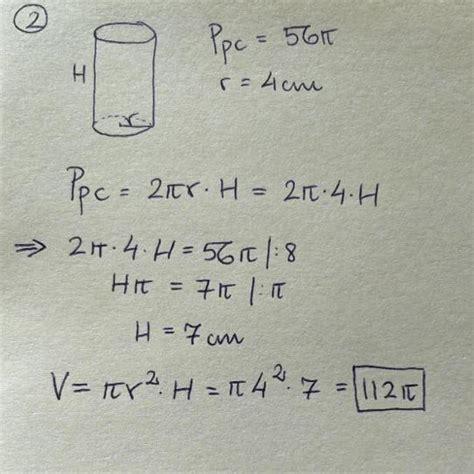 2
H
r
Ppc = 56π
r = 4cm
Ppc = 2πr · H = 2π · 4 · H
⇒ 2π · 4 · H = 56π |: 8
Hπ = 7π |: π
H = 7cm
V = πr² · H = π4² · 7 = 112π